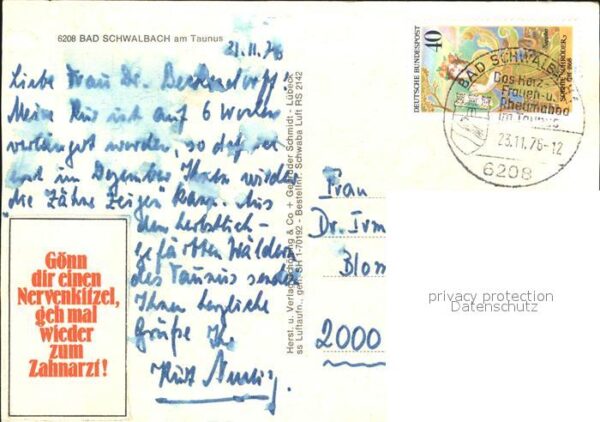 6208 BAD SCHWALBACH am Taunus
Liebe Frau Dr.
Meine Kur ist auf 6 Wochen
verlängert worden, so daß ich
erst im Dezember Ihnen wieder
"die Zähne zeigen" kann. Aus
den herbstlich-
gefärbten Wäldern
des Taunus sende
Ihnen herzliche
Grüße Ihr
Gönn
dir einen
Nervenkitzel,
geh mal
wieder
zum
Zahnarzt!
Herst. u. Verlag Schöning & Co + Gebrüder Schmidt - Lübeck
ss Luftaufn., gen. SH 1-70192 - Bestellnr. Schwaba Luft RS 2142
DEUTSCHE BUNDESPOST
40
BAD SCHWALBACH
Das Herz-
Frauen-u.
Rheumabad
im Taunus
23.11.76-12
6208
Frau
Dr. Irm
Blom
2000
privacy protection
Datenschutz